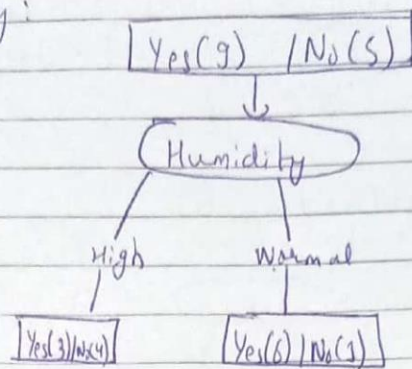 y:
Yes(9) / No(5)
Humidity
High Normal
Yes(3)/No(4) Yes(6) / No(1)